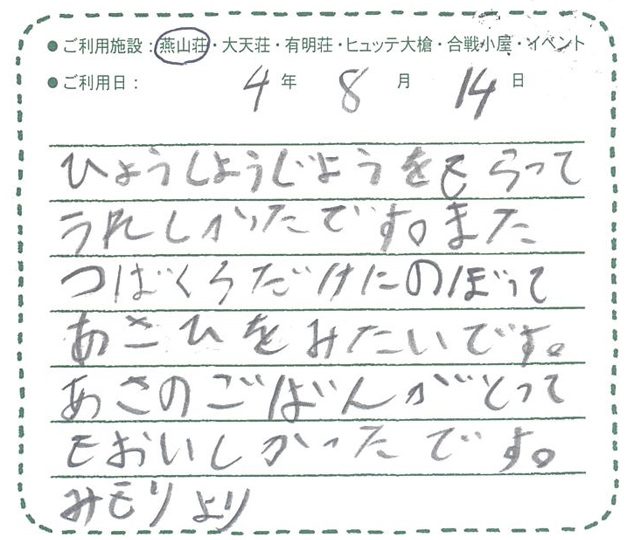 ●ご利用施設：燕山荘・大天荘・有明荘・ヒュッテ大槍・合戦小屋・イベント
●ご利用日： 4年 8月 14日
ひょうしょうじょうをもらって
うれしかったです。また
つばくろだけにのぼって
あさひをみたいです。
あさのごばんがとって
もおいしかったです。
みもりより